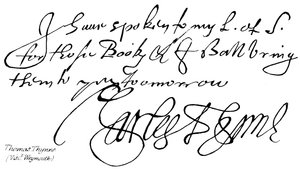 I haue spoken to my L. of S.
for those Books & I shall bring
them to you toomorrow
Thomas Thynne
(Visct Weymouth)